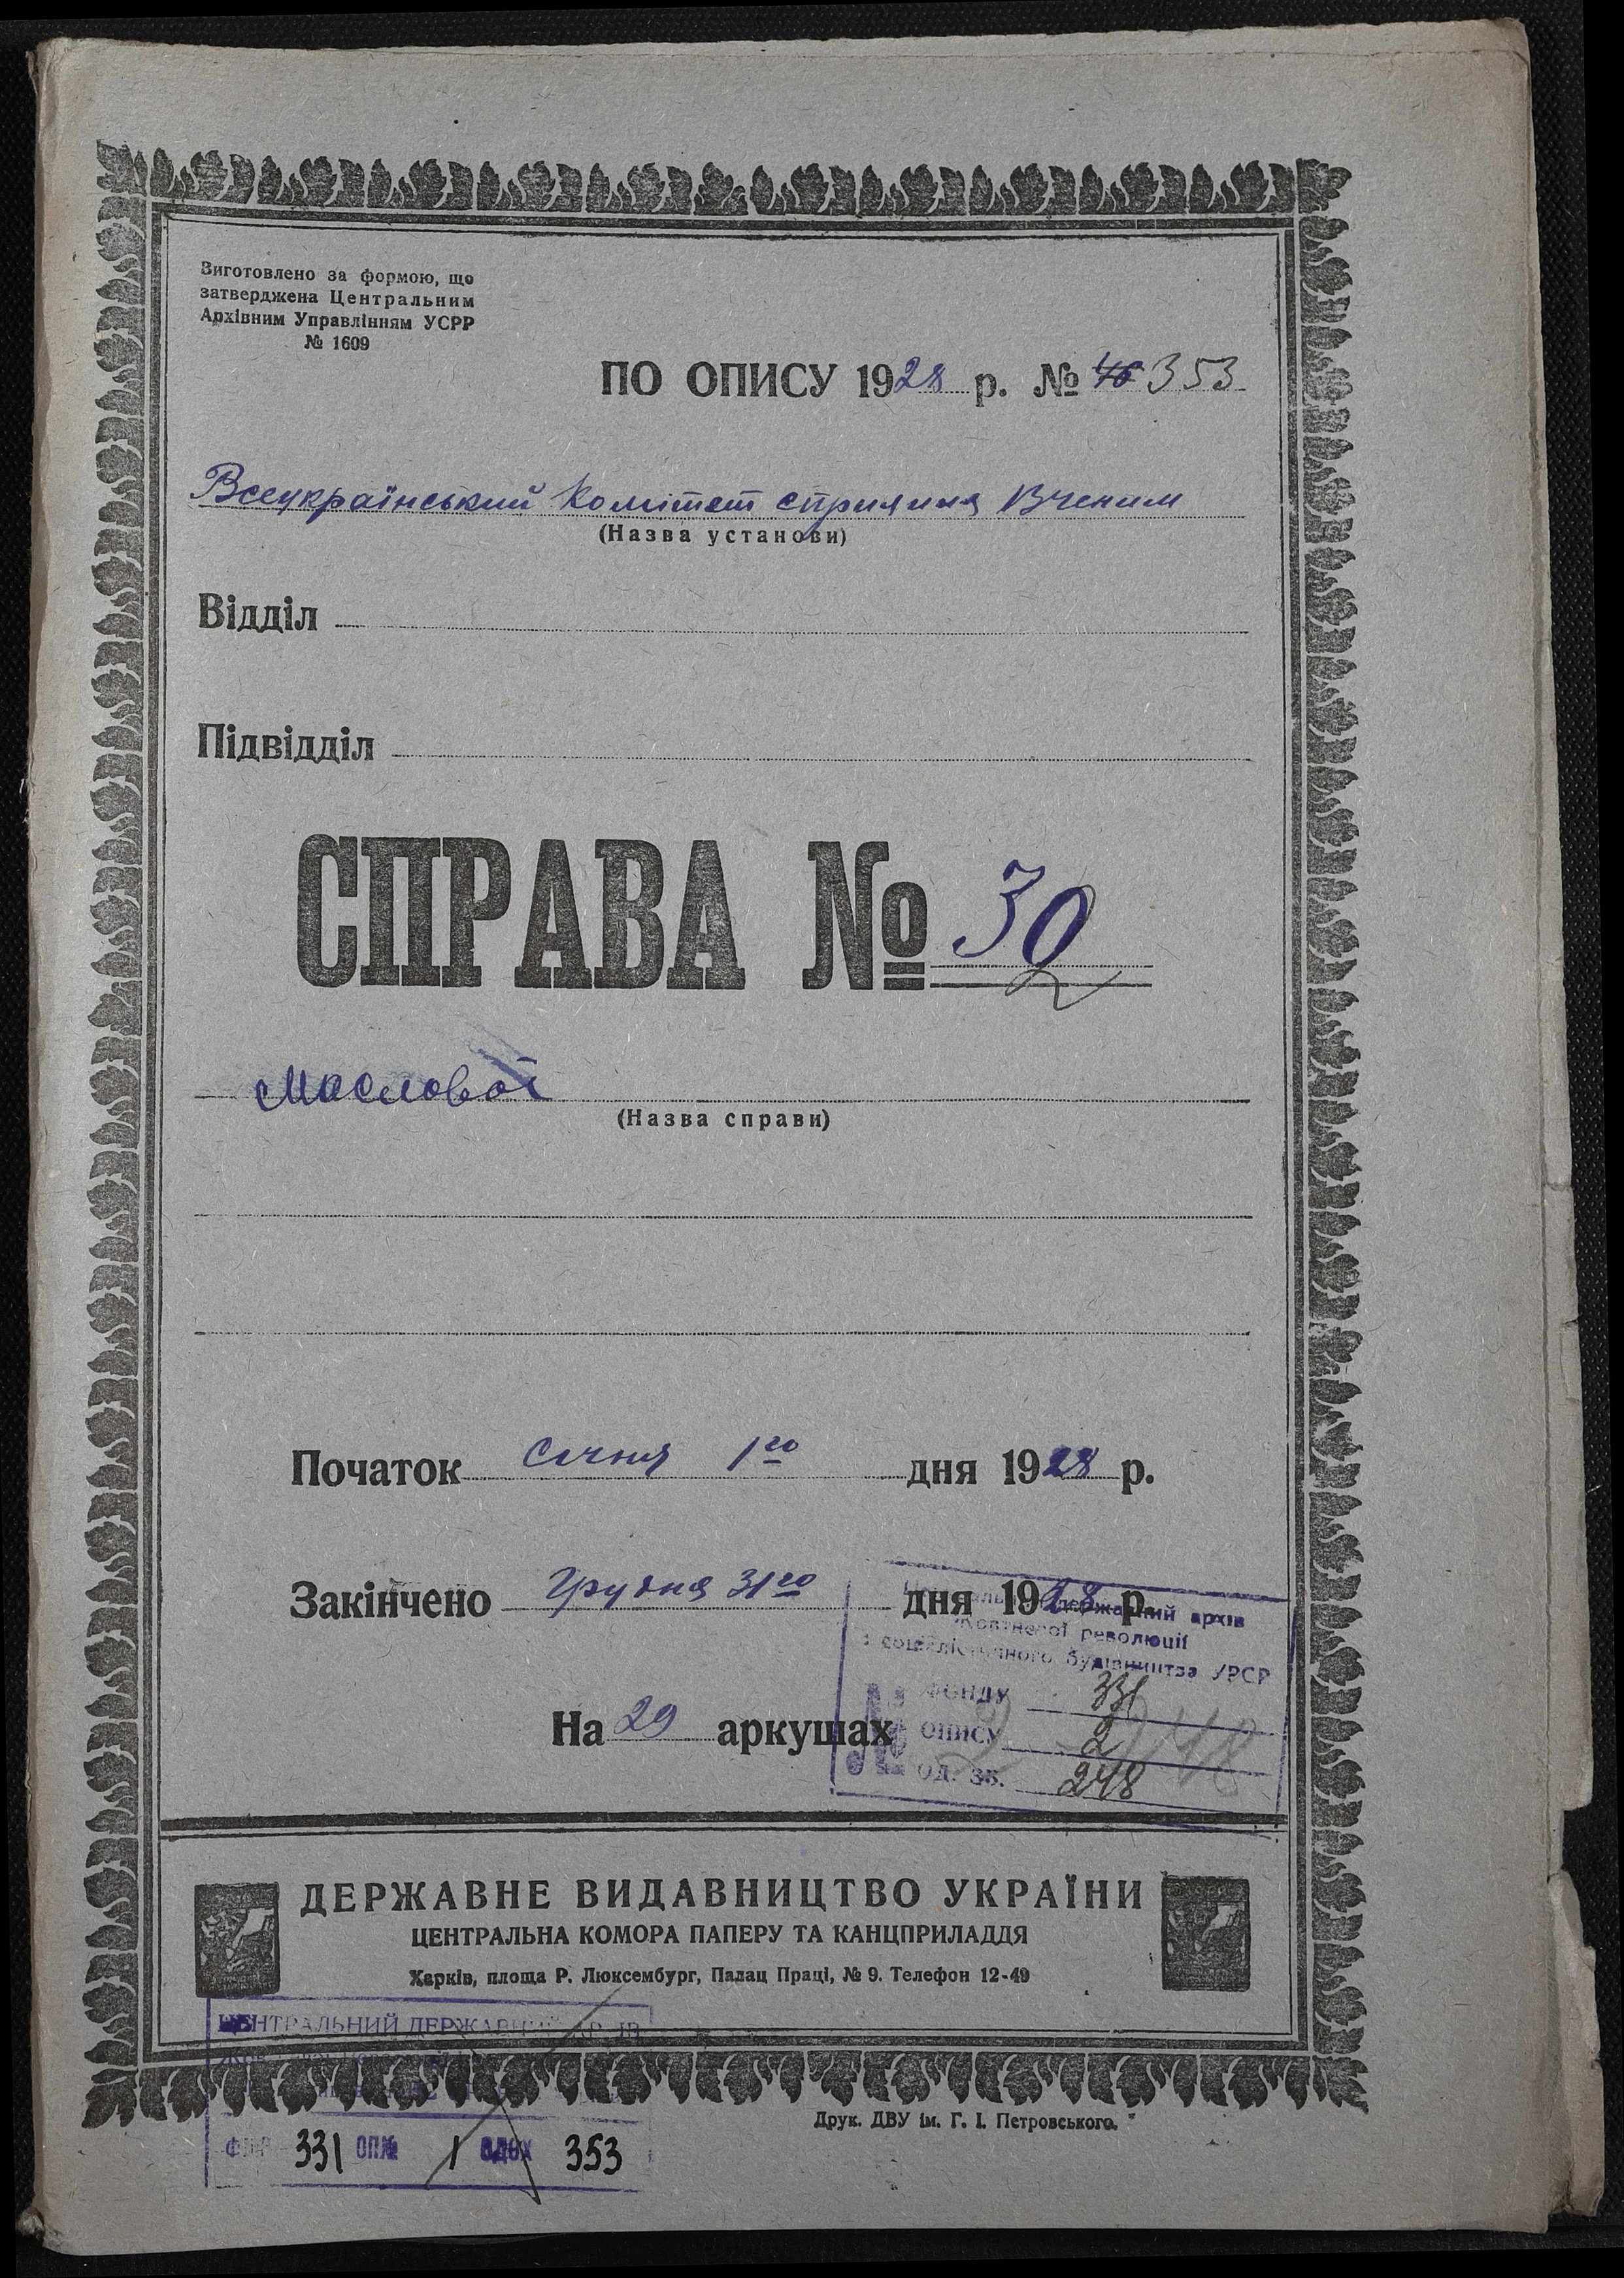 Виготовлено за формою, що
затверджена Центральним
Архівним Управлінням УСРР
№ 1609
ПО ОПИСУ 1928 р. № 46 353
Всеукраїнський Комітет сприяння Вченим
(Назва установи)
Відділ
Підвідділ
СПРАВА № 30
Маслової
(Назва справи)
Початок січня 1го дня 1928 р.
Закінчено грудня 31го дня 1928 р.
державний архів
Жовтневої революції
і соціалістичного будівництва УРСР
ФОНДУ 331
На 29 аркушах
№ ОПИСУ 2
ОД. ЗБ. 248
2 248
ДЕРЖАВНЕ ВИДАВНИЦТВО УКРАЇНИ
ЦЕНТРАЛЬНА КОМОРА ПАПЕРУ ТА КАНЦПРИЛАДДЯ
Харків, площа Р. Люксембург, Палац Праці, № 9. Телефон 12-49
ЦЕНТРАЛЬНИЙ ДЕРЖАВНИЙ АРХІВ
Друк. ДВУ ім. Г. І. Петровського.
331 ОП№ 1 ОДЗХ 353